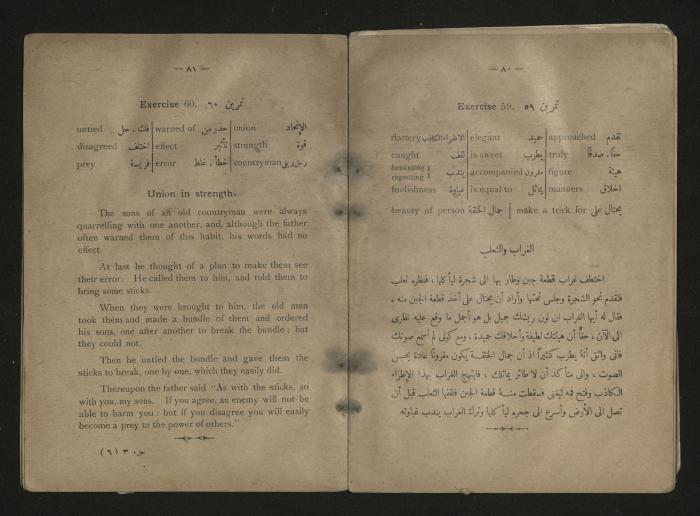 — ٨٠ —
Exercise 59. تمرين ٥٩
flattery الاطراء الكاذب elegant حميد approached تقدم
caught لقف is sweet يطرب truly حقا . صدقا
lamenting regretting يندب accompanied مقرون figure هيئة
foolishness غباوة is equal to يماثل manners اخلاق
beauty of person جمال الخلقة make a trick for يحتال على
الغراب والثعلب
اختطف غراب قطعة جبن وطار بها الى شجرة ليأكلها ، فنظره ثعلب
فتقدم نحو الشجرة وجلس تحتها وأراد أن يحتال على أخذ قطعة الجبن منه ،
فقال له أيها الغراب ان لون ريشك جميل بل هو أجمل ما وقع عليه نظرى
الى الآن ، حقاً أن هيئتك لطيفة وأخلاقك حميدة ، ومع كونى لم أسمع صوتك
فانى واثق أنه يطرب كثيراً اذ أن جمال الخلقة يكون مقروناً عادة بحسن
الصوت ، وانى متأكد أن لا طائر يماثلك ، فابتهج الغراب بهذا الإطراء
الكاذب وفتح فمه ليغنى فسقطت منه قطعة الجبن فلقفها الثعلب قبل أن
تصل الى الأرض وأسرع الى جحره ليأكلها وترك الغراب يندب غباوته
— ٨١ —
Exercise 60. تمرين ٦٠
untied فك . حل warned of حذر من union الإتحاد
disagreed اختلف effect تأثير strength قوة
prey فريسة error خطأ . غلط countryman رجل ريفى
Union in strength.
The sons of an old countryman were always
quarrelling with one another, and, although the father
often warned them of this habit, his words had no
effect.
At last he thought of a plan to make them see
their error. He called them to him, and told them to
bring some sticks.
When they were brought to him, the old man
took them and made a bundle of them and ordered
his sons, one after another to break the bundle ; but
they could not.
Then he untied the bundle and gave them the
sticks to break, one by one, which they easily did.
Thereupon the father said "As with the sticks, so
with you, my sons. If you agree, an enemy will not be
able to harm you ; but if you disagree you will easily
become a prey to the power of others."
جزء ٣ (٦)